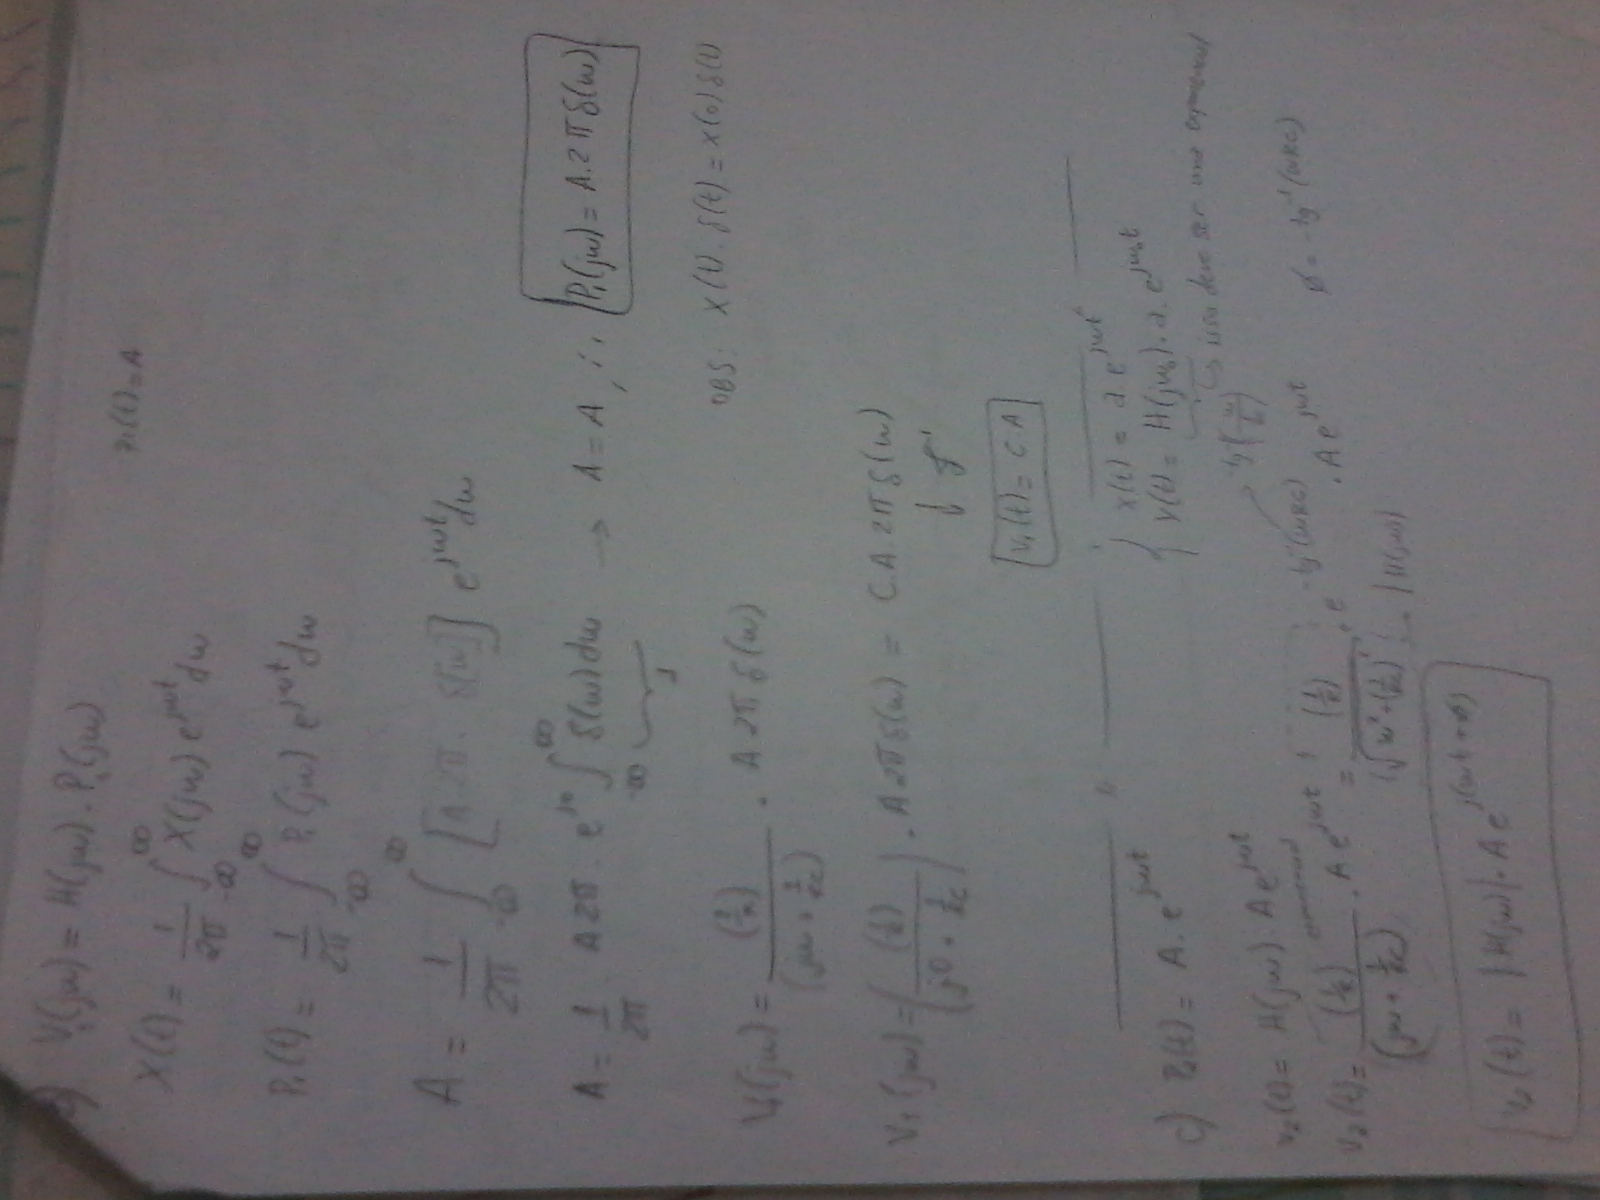 V₁(jω) = H(jω) . P₁(jω)
p₁(t) = A
X(t) = 1/2π ∫_{-∞}^{∞} X(jω) e^{jωt} dω
P₁(t) = 1/2π ∫_{-∞}^{∞} P₁(jω) e^{jωt} dω
A = 1/2π ∫_{-∞}^{∞} [A.2π. δ(ω)] e^{jωt} dω
A = 1/2π . A 2π . e^{j0} ∫_{-∞}^{∞} δ(ω)dω → A = A, ∴ P₁(jω) = A.2πδ(ω)
1
OBS: X(t).δ(t) = X(0)δ(t)
V₁(jω) = (1/R)/(jω + 1/RC) . A 2π δ(ω)
V₁(jω) = ((1/R)/(j0 + 1/RC)) . A 2πδ(ω) = C.A.2πδ(ω)
↓ F⁻¹
V₁(t) = C.A
x(t) = a.e^{jωt}
c) P₂(t) = A.e^{jωt}
Y(t) = H(jω₀).a.e^{jω₀t}
↳ isso deve ser uma exponencial
V₂(t) = H(jω). A e^{jωt}
exponencial
V₂(t) = (1/R)/(jω + 1/RC) . A e^{jωt} = (1/R)/√(ω² + (1/RC)²) . e^{-tg⁻¹(ωRC)} . A e^{jωt}
ø = -tg⁻¹(ωRC)
|H(jω)|
V₂(t) = |H(jω)|. A e^{j(ωt + ø)}